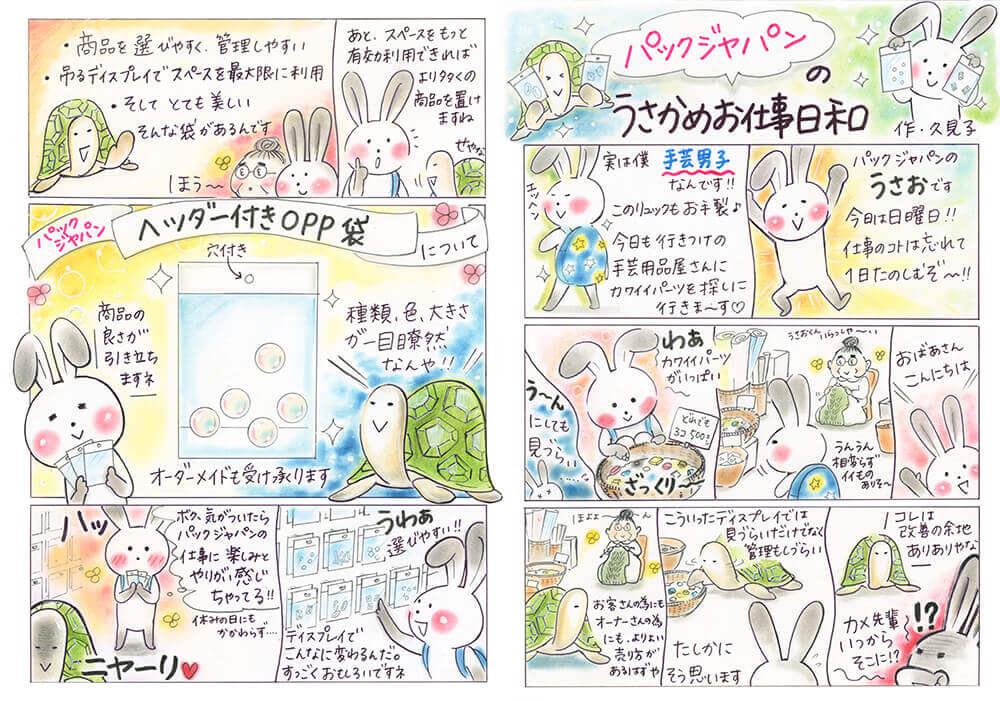 パックジャパン
の
うさかめお仕事日和
作・久見子
パックジャパンの
うさおです
今日は日曜日!!
仕事のコトは忘れて
1日たのしむぞ〜!!
実は僕
手芸男子
なんです!!
このリュックもお手製♪
今日も行きつけの
手芸用品屋さんに
カワイイパーツを探しに
行きま〜す♡
エッヘン
おばあさん
こんにちは
うさおくん いらっしゃ〜い
うんうん
相変らず
イイもの
ありそ〜
わぁ
カワイイパーツ
がいっぱい
どれでも
3コ500円
ざっくり〜
う〜ん
にしても
見づらい
コレは
改善の余地
ありありやな
!?
カメ先輩
いつから
そこに!?
こういったディスプレイでは
見づらいだけでなく
管理もしづらい
たしかに
そう思います
ほよよ〜ん
お客さんの為にも
オーナーさんの為
にも、よりよい
売り方が
あるはずや
あと、スペースをもっと
有効利用できれば
より多くの
商品を置け
ますね
せやな
・商品を選びやすく、管理しやすい
・吊るディスプレイでスペースを最大限に利用
・そして とても美しい
そんな袋があるんです
ほぅ〜
パック
ジャパン
ヘッダー付きOPP袋
について
穴付き
商品の
良さが
引き立ち
ますネ
種類、色、大きさ
が一目瞭然
なんや!!
オーダーメイドも受け承ります
うわぁ
選びやすい!!
ディスプレイで
こんなに変わるんだ。
すっごくおもしろいですネ
ハッ
ボク、気がついたら
パックジャパンの
仕事に楽しみと
やりがい感じ
ちゃってる!!
休みの日にも
かかわらず…
ニヤーリ♥